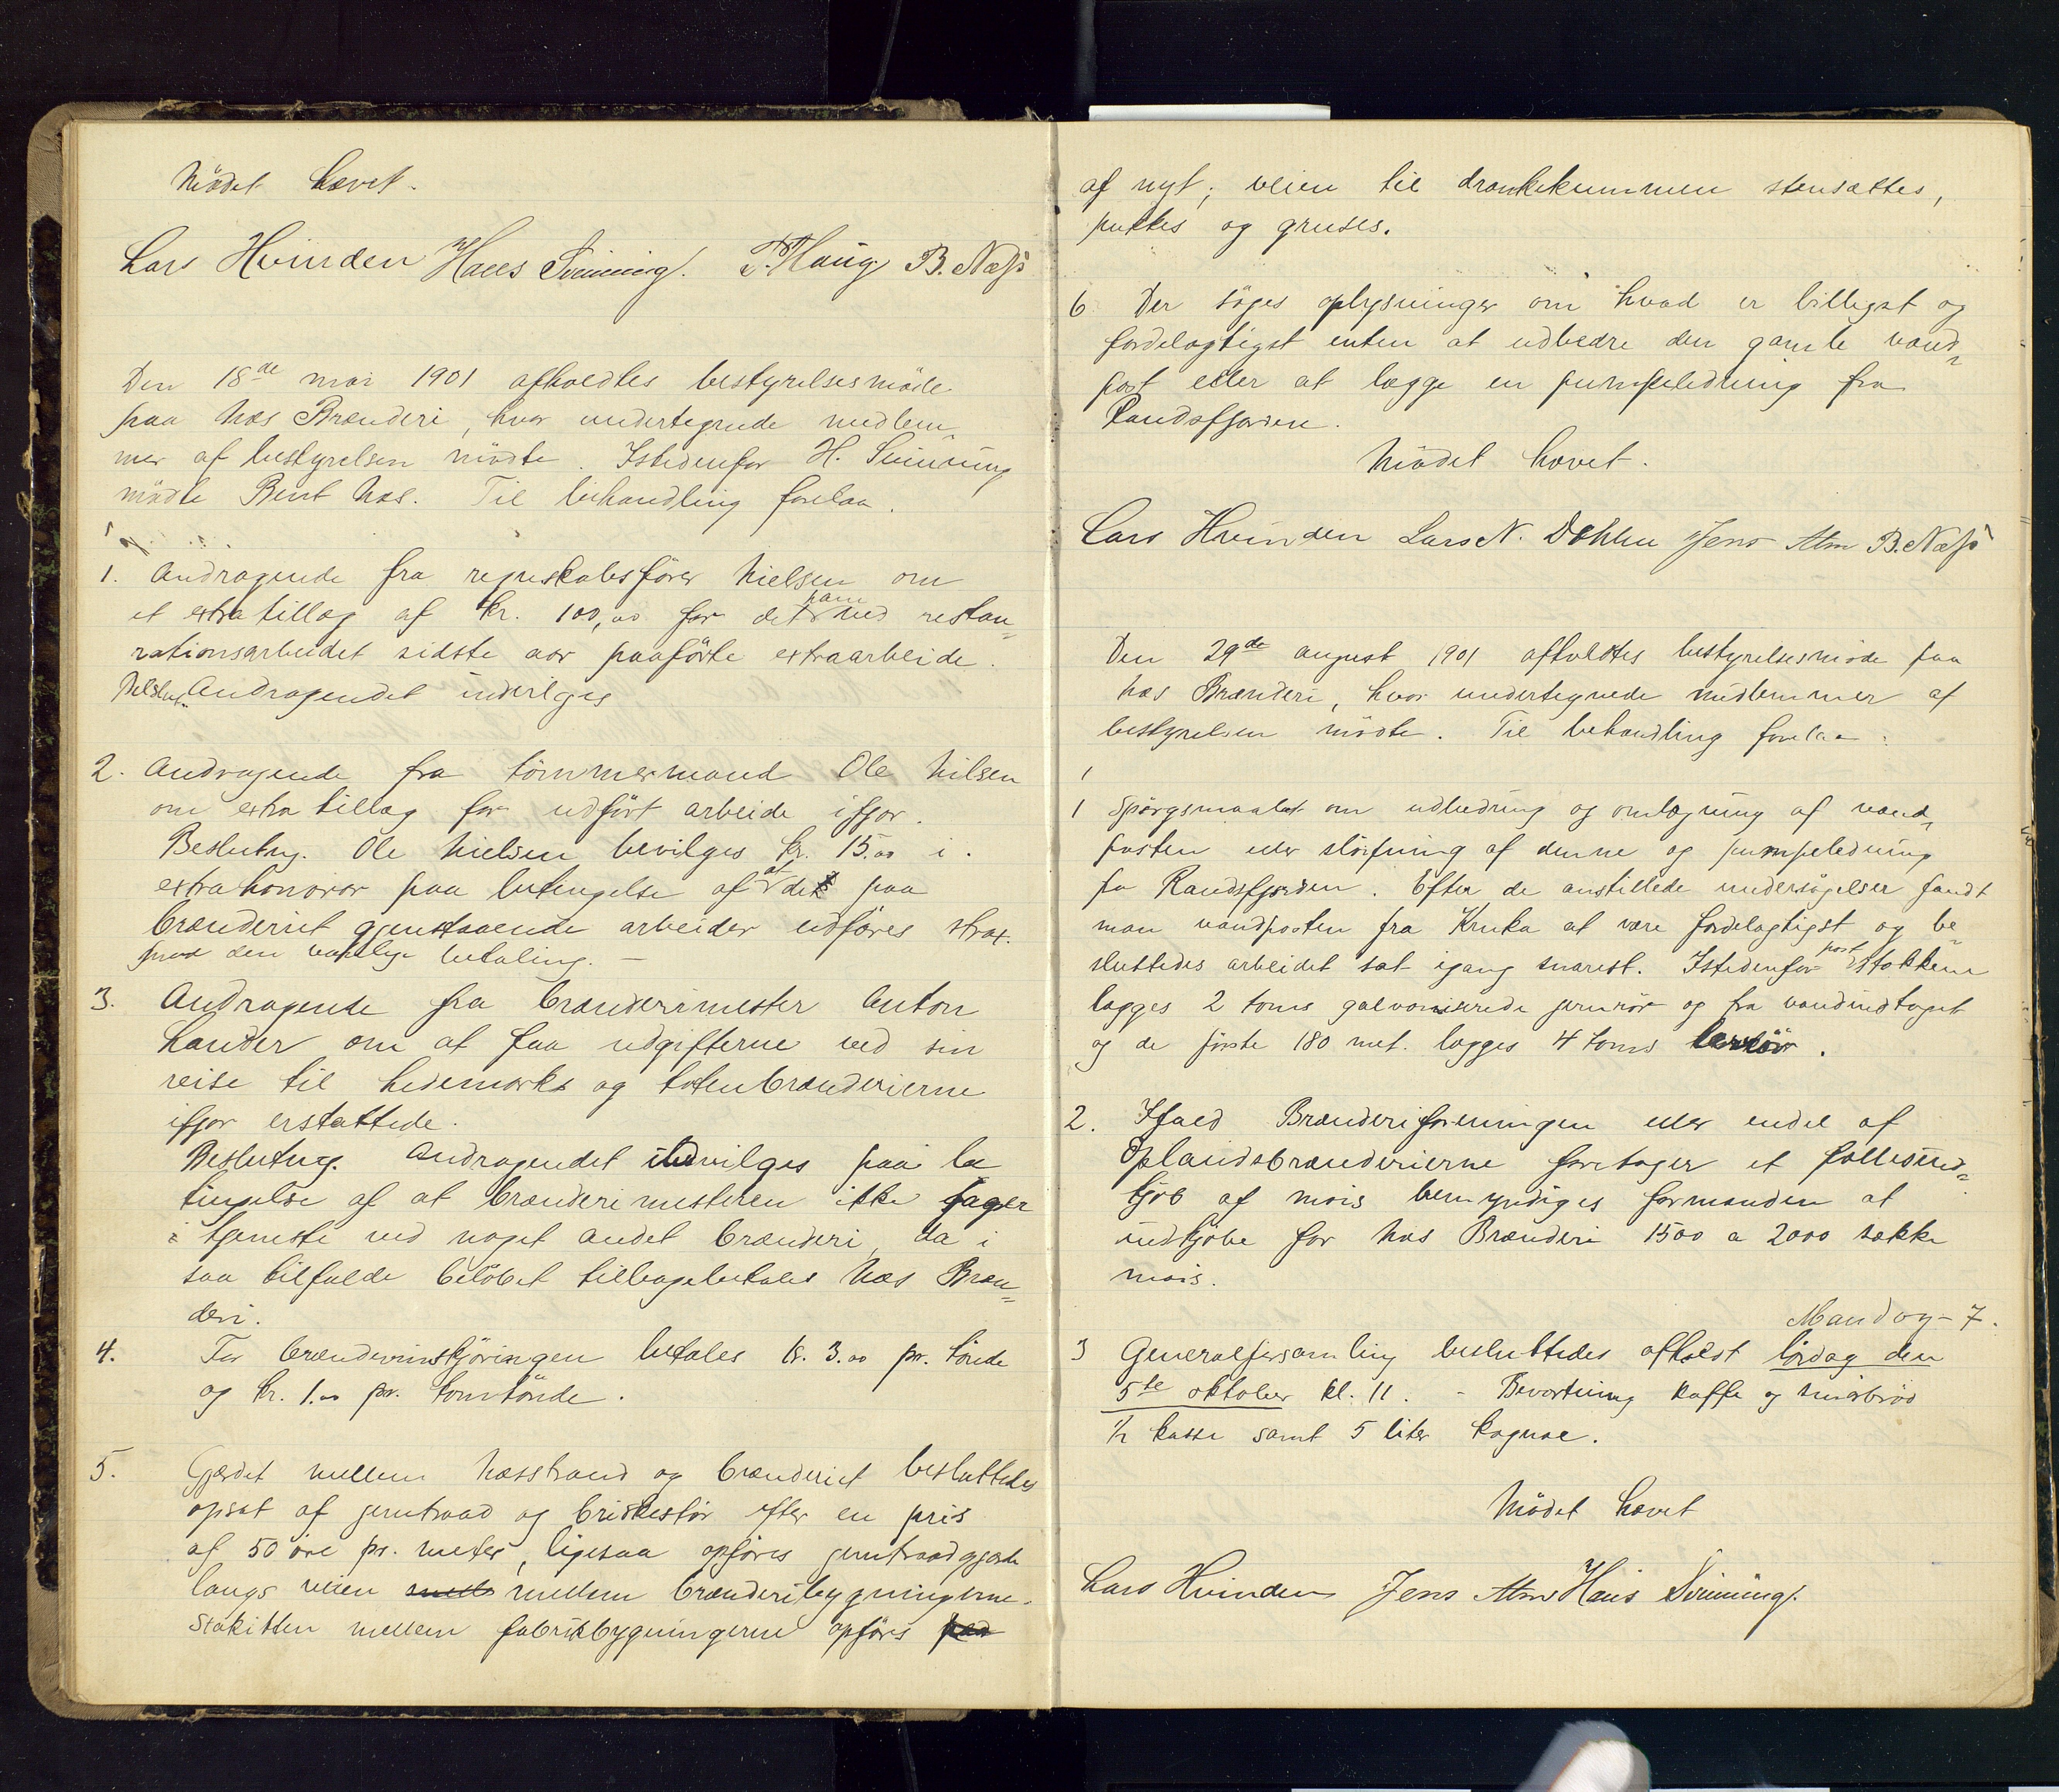 Mödet hævet.
Lars Hvinden Hans Svinning. P. Haug. B. Næss
Den 18de mai 1901 afholdtes bestyrelsesmöde
paa Næs Brænderi, hvor undertegnede medlem
mer af bestyrelsen mödte. Istedenfor H. Svinning
mödte Bent Næs. Til behandling forelaa.
1. Andragende fra regnskabsförer Nielsen om
et extra tillæg af kr. 100,00 for det ham ved restau=
rationsarbeidet sidste aar paaförte extraarbeide.
Beslut. Andragendet indvilges
2. Andragende fra tömmermand Ole Nilsen
om extra tillæg for udfört arbeide ifjor.
Beslutng. Ole Nielsen bevilges kr. 15.00 i
extrahonorar paa betingelse af at de paa
brænderiet gjenstaaende arbeider udföres strax.
mod den vanlige betaling. —
3. Andragende fra brænderimester Anton
Lander om at faa udgifterne ved sin
reise til Hedemarks og totenbrænderierne
ifjor erstattede.
Beslutng. Andragendet indvilges paa be
tingelse af at brænderimesteren ikke tager
i tjeneste ved noget andet brænderi, da i
saa tilfælde belöbet tilbagebetales Næs Bræn=
deri.
4. For brændevinskjöringen betales kr. 3.00 pr. tönde
og kr. 1.00 pr. tomtönde.
5. Gjerdet mellem Næsstrand og brænderiet besluttedes
opsat af jerntraad og briskestör efter en pris
af 50 öre pr. meter, ligesaa opföres jerntraadgjerde
langs veien mellem brænderibygningerne.
Stakitten mellem fabrikbygningerne opföres
af nyt; veien til drankekummen stensættes,
pukkes og gruses.
6 Der söges oplysninger om hvad er billigst og
fordelagtigst enten at udbedre den gamle vand=
post eller at lægge en pumpeledning fra
Randsfjorden.
Mödet hævet.
Lars Hvinden Lars N. Dæhlen Jens Alm B. Næss
Den 29de august 1901 afholdtes bestyrelsesmöde paa
Næs Brænderi, hvor undertegnede medlemmer af
bestyrelsen mödte. Til behandling forelaa:
1
1 Spörgsmaalet om udbedring og omlægning af vand=
posten eller slöifning af denne og pumpeledning
fra Randsfjorden. Efter de anstillede undersögelser fandt
man vandposten fra Kruka at være fordelagtigst og be=
sluttedes arbeidet sat igang snarest. Istedenfor poststokkene
lægges 2 toms galvaniserede jernrör og fra vandindtaget
og de förste 180 met. lægges 4 toms lerrör.
2. Ifald Brænderiforeningen eller endel af
Oplandsbrænderierne foretager et fællesind=
kjöb af mais bemyndiges formanden at
indkjöbe for Næs Brænderi 1500 a 2000 sække
mais.
Mandag - 7.
3 Generalforsamling besluttedes afholdt lördag den
5te oktober kl. 11. - Bevertning kaffe og smörbröd
½ kasse samt 5 liter kognac.
Mödet hævet
Lars Hvinden Jens Alm Hans Svinning.